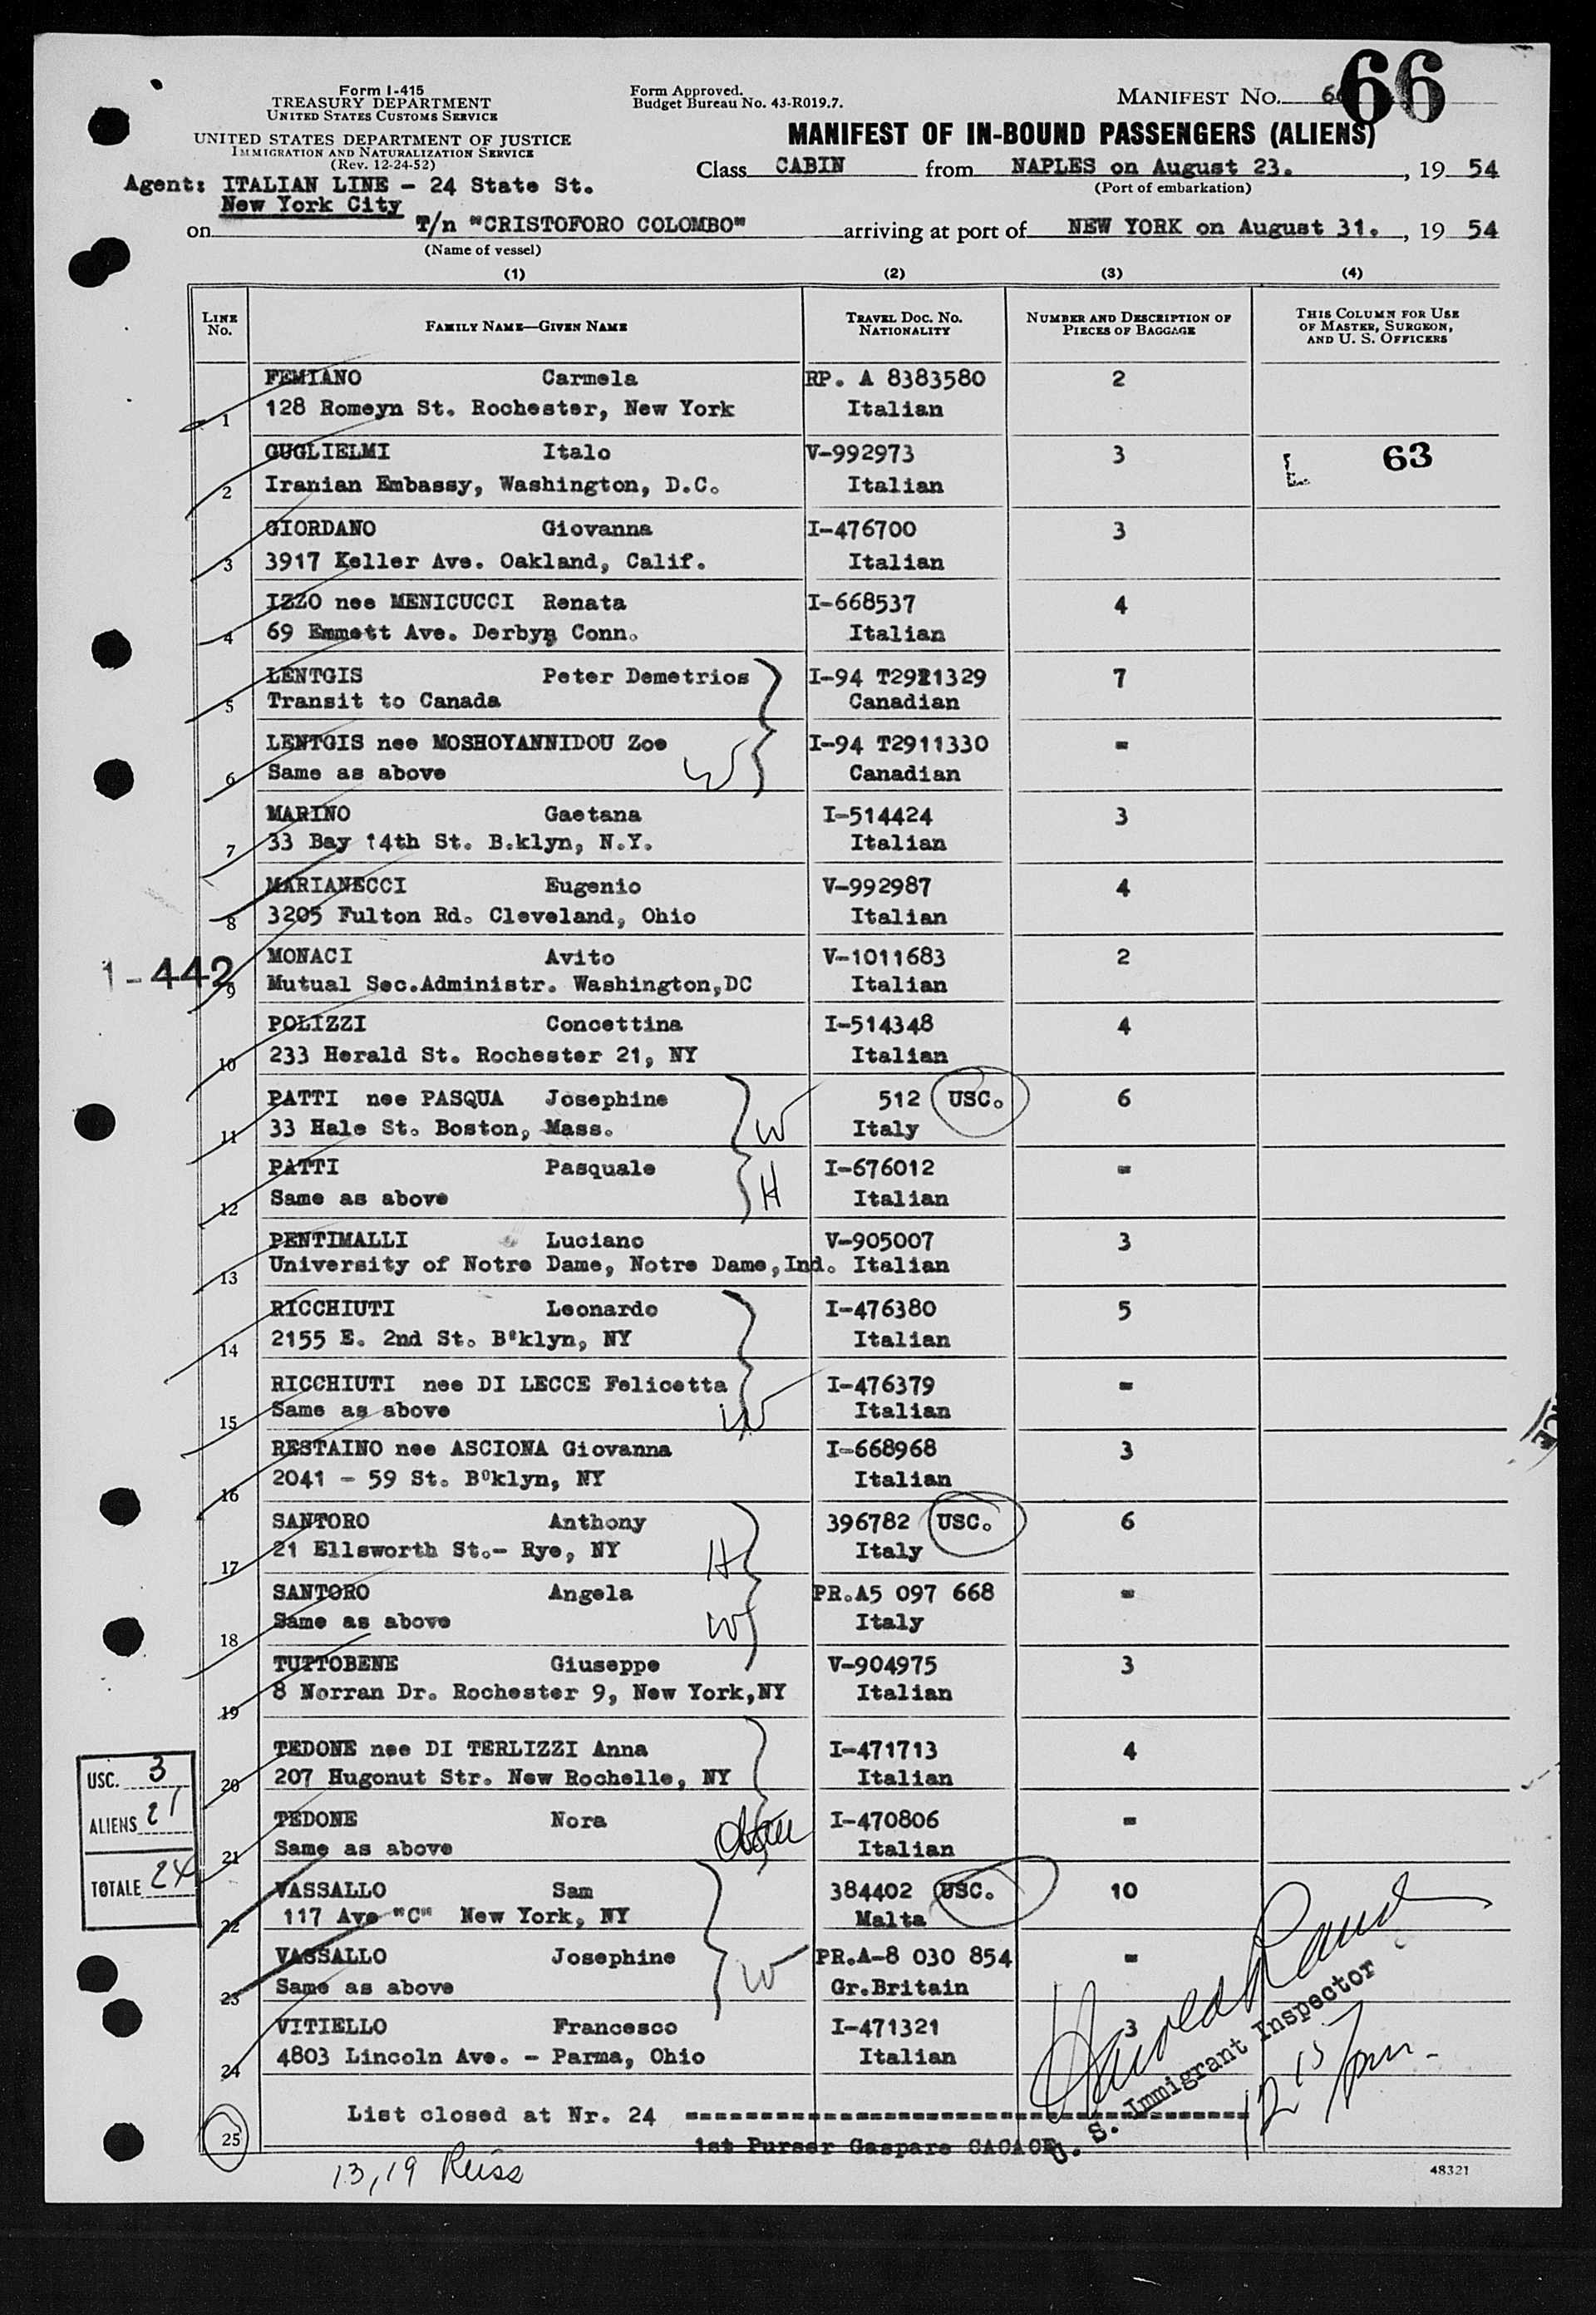 66
Form I-415
TREASURY DEPARTMENT
UNITED STATES CUSTOMS SERVICE
UNITED STATES DEPARTMENT OF JUSTICE
IMMIGRATION AND NATURALIZATION SERVICE
(Rev. 12-24-52)
Form Approved.
Budget Bureau No. 43-R019.7.
MANIFEST NO. 66
MANIFEST OF IN-BOUND PASSENGERS (ALIENS)
Class CABIN from NAPLES on August 23. , 19 54
(Port of embarkation)
Agent: ITALIAN LINE - 24 State St.
New York City
on T/n "CRISTOFORO COLOMBO" arriving at port of NEW YORK on August 31. , 19 54
(Name of vessel)
(1) (2) (3) (4)
LINE No. FAMILY NAME—GIVEN NAME TRAVEL DOC. NO. NATIONALITY NUMBER AND DESCRIPTION OF PIECES OF BAGGAGE THIS COLUMN FOR USE OF MASTER, SURGEON, AND U. S. OFFICERS
FEMIANO Carmela RP. A 8383580 2
1 128 Romeyn St. Rochester, New York Italian
GUGLIELMI Italo V-992973 3 63
2 Iranian Embassy, Washington, D.C. Italian
GIORDANO Giovanna I-476700 3
3 3917 Keller Ave. Oakland, Calif. Italian
IZZO nee MENICUCCI Renata I-668537 4
4 69 Emmett Ave. Derby, Conn. Italian
LENTGIS Peter Demetrios I-94 T2911329 7
5 Transit to Canada Canadian
LENTGIS nee MOSHOYANNIDOU Zoe I-94 T2911330 =
6 Same as above W Canadian
MARINO Gaetana I-514424 3
7 33 Bay 14th St. B.klyn, N.Y. Italian
MARIANECCI Eugenio V-992987 4
8 3205 Fulton Rd. Cleveland, Ohio Italian
MONACI Avito V-1011683 2
1-442
9 Mutual Sec.Administr. Washington,DC Italian
POLIZZI Concettina I-514348 4
10 233 Herald St. Rochester 21, NY Italian
PATTI nee PASQUA Josephine 512 USC. 6
11 33 Hale St. Boston, Mass. W Italy
PATTI Pasquale I-676012 =
12 Same as above H Italian
PENTIMALLI Luciano V-905007 3
13 University of Notre Dame, Notre Dame,Ind. Italian
RICCHIUTI Leonardo I-476380 5
14 2155 E. 2nd St. B'klyn, NY Italian
RICCHIUTI nee DI LECCE Felicetta I-476379 =
15 Same as above W Italian
RESTAINO nee ASCIONA Giovanna I-668968 3
16 2041 - 59 St. B'klyn, NY Italian
SANTORO Anthony 396782 USC. 6
17 21 Ellsworth St.- Rye, NY H Italy
SANTORO Angela PR.A5 097 668 =
18 Same as above W Italy
TUTTOBENE Giuseppe V-904975 3
19 8 Norran Dr. Rochester 9, New York,NY Italian
TEDONE nee DI TERLIZZI Anna I-471713 4
20 207 Hugonut Str. New Rochelle, NY Italian
TEDONE Nora I-470806 =
21 Same as above Italian
VASSALLO Sam 384402 USC. 10
22 117 Ave "C" New York, NY Malta
VASSALLO Josephine PR.A-8 030 854 =
23 Same as above W Gr.Britain
VITIELLO Francesco I-471321 3
24 4803 Lincoln Ave. - Parma, Ohio Italian
USC. 3
ALIENS 21
TOTALE 24
List closed at Nr. 24 ==============================
25 1st Purser Gaspare CACACE
U. S. Immigrant Inspector
13, 19 Reiss
48321